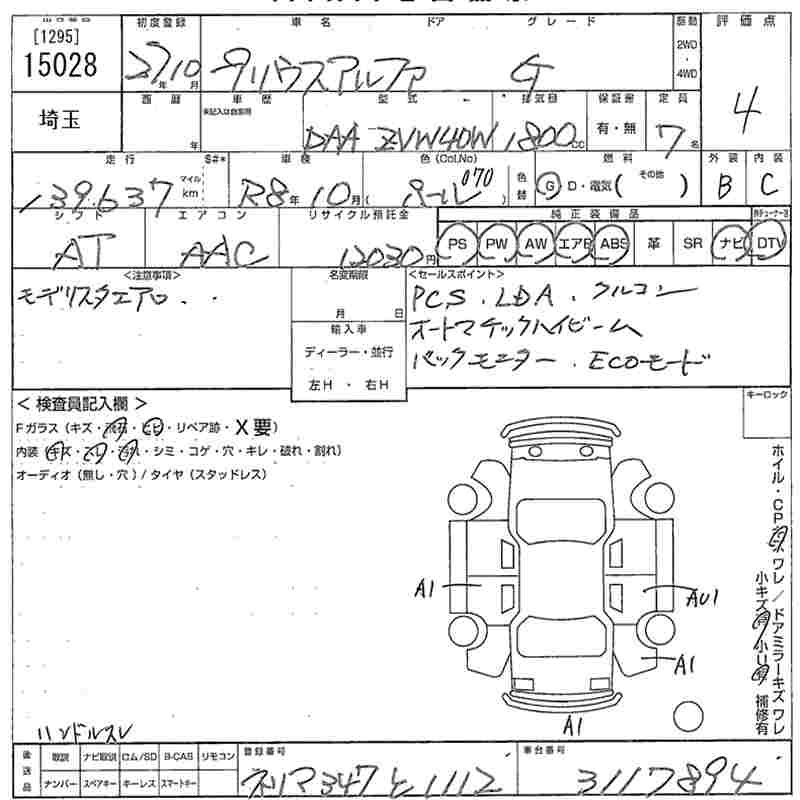 [1295]
15028
埼玉
初度登録
27年10月
車名 ドア グレード
プリウスアルファ G
駆動
2WD
・
4WD
評価点
4
西暦
年
車歴
未記入は自家用
型式
DAA ZVW40W
排気量
1800cc
保証書
有・無
定員
7名
走行
139,637
マイル
km
S#*
車検
R8年10月
色(Col.No)
パール 070
色替
燃料
G D・電気( その他 )
外装
B
内装
C
シフト
AT
エアコン
AAC
リサイクル預託金
12030円
純正装備品
PS PW AW エアB ABS 革 SR ナビ DTV
<注意事項>
モデリスタエアロ..
名変期限
月 日
輸入車
ディーラー・並行
左H ・ 右H
<セールスポイント>
PCS.LDA.クルコン
オートマチックハイビーム
バックモニター.ECOモード
<検査員記入欄>
Fガラス(キズ・飛石・ヒビ・リペア跡・X要)
内装(キズ・スレ・汚れ・シミ・コゲ・穴・キレ・破れ・割れ)
オーディオ(無し・穴)/タイヤ(スタッドレス)
キーロック
A1
AU1
A1
A1
ホイル・CPキズ ワレ/ドアミラーキズ ワレ
小キズ有 小U有 補修有
ハンドルスレ
後送品
取説 ナビ取説 ロム/SD B-CAS リモコン
ナンバー スペアキー キーレス スマートキー
登録番号
ネリマ347と1112
車台番号
3117894